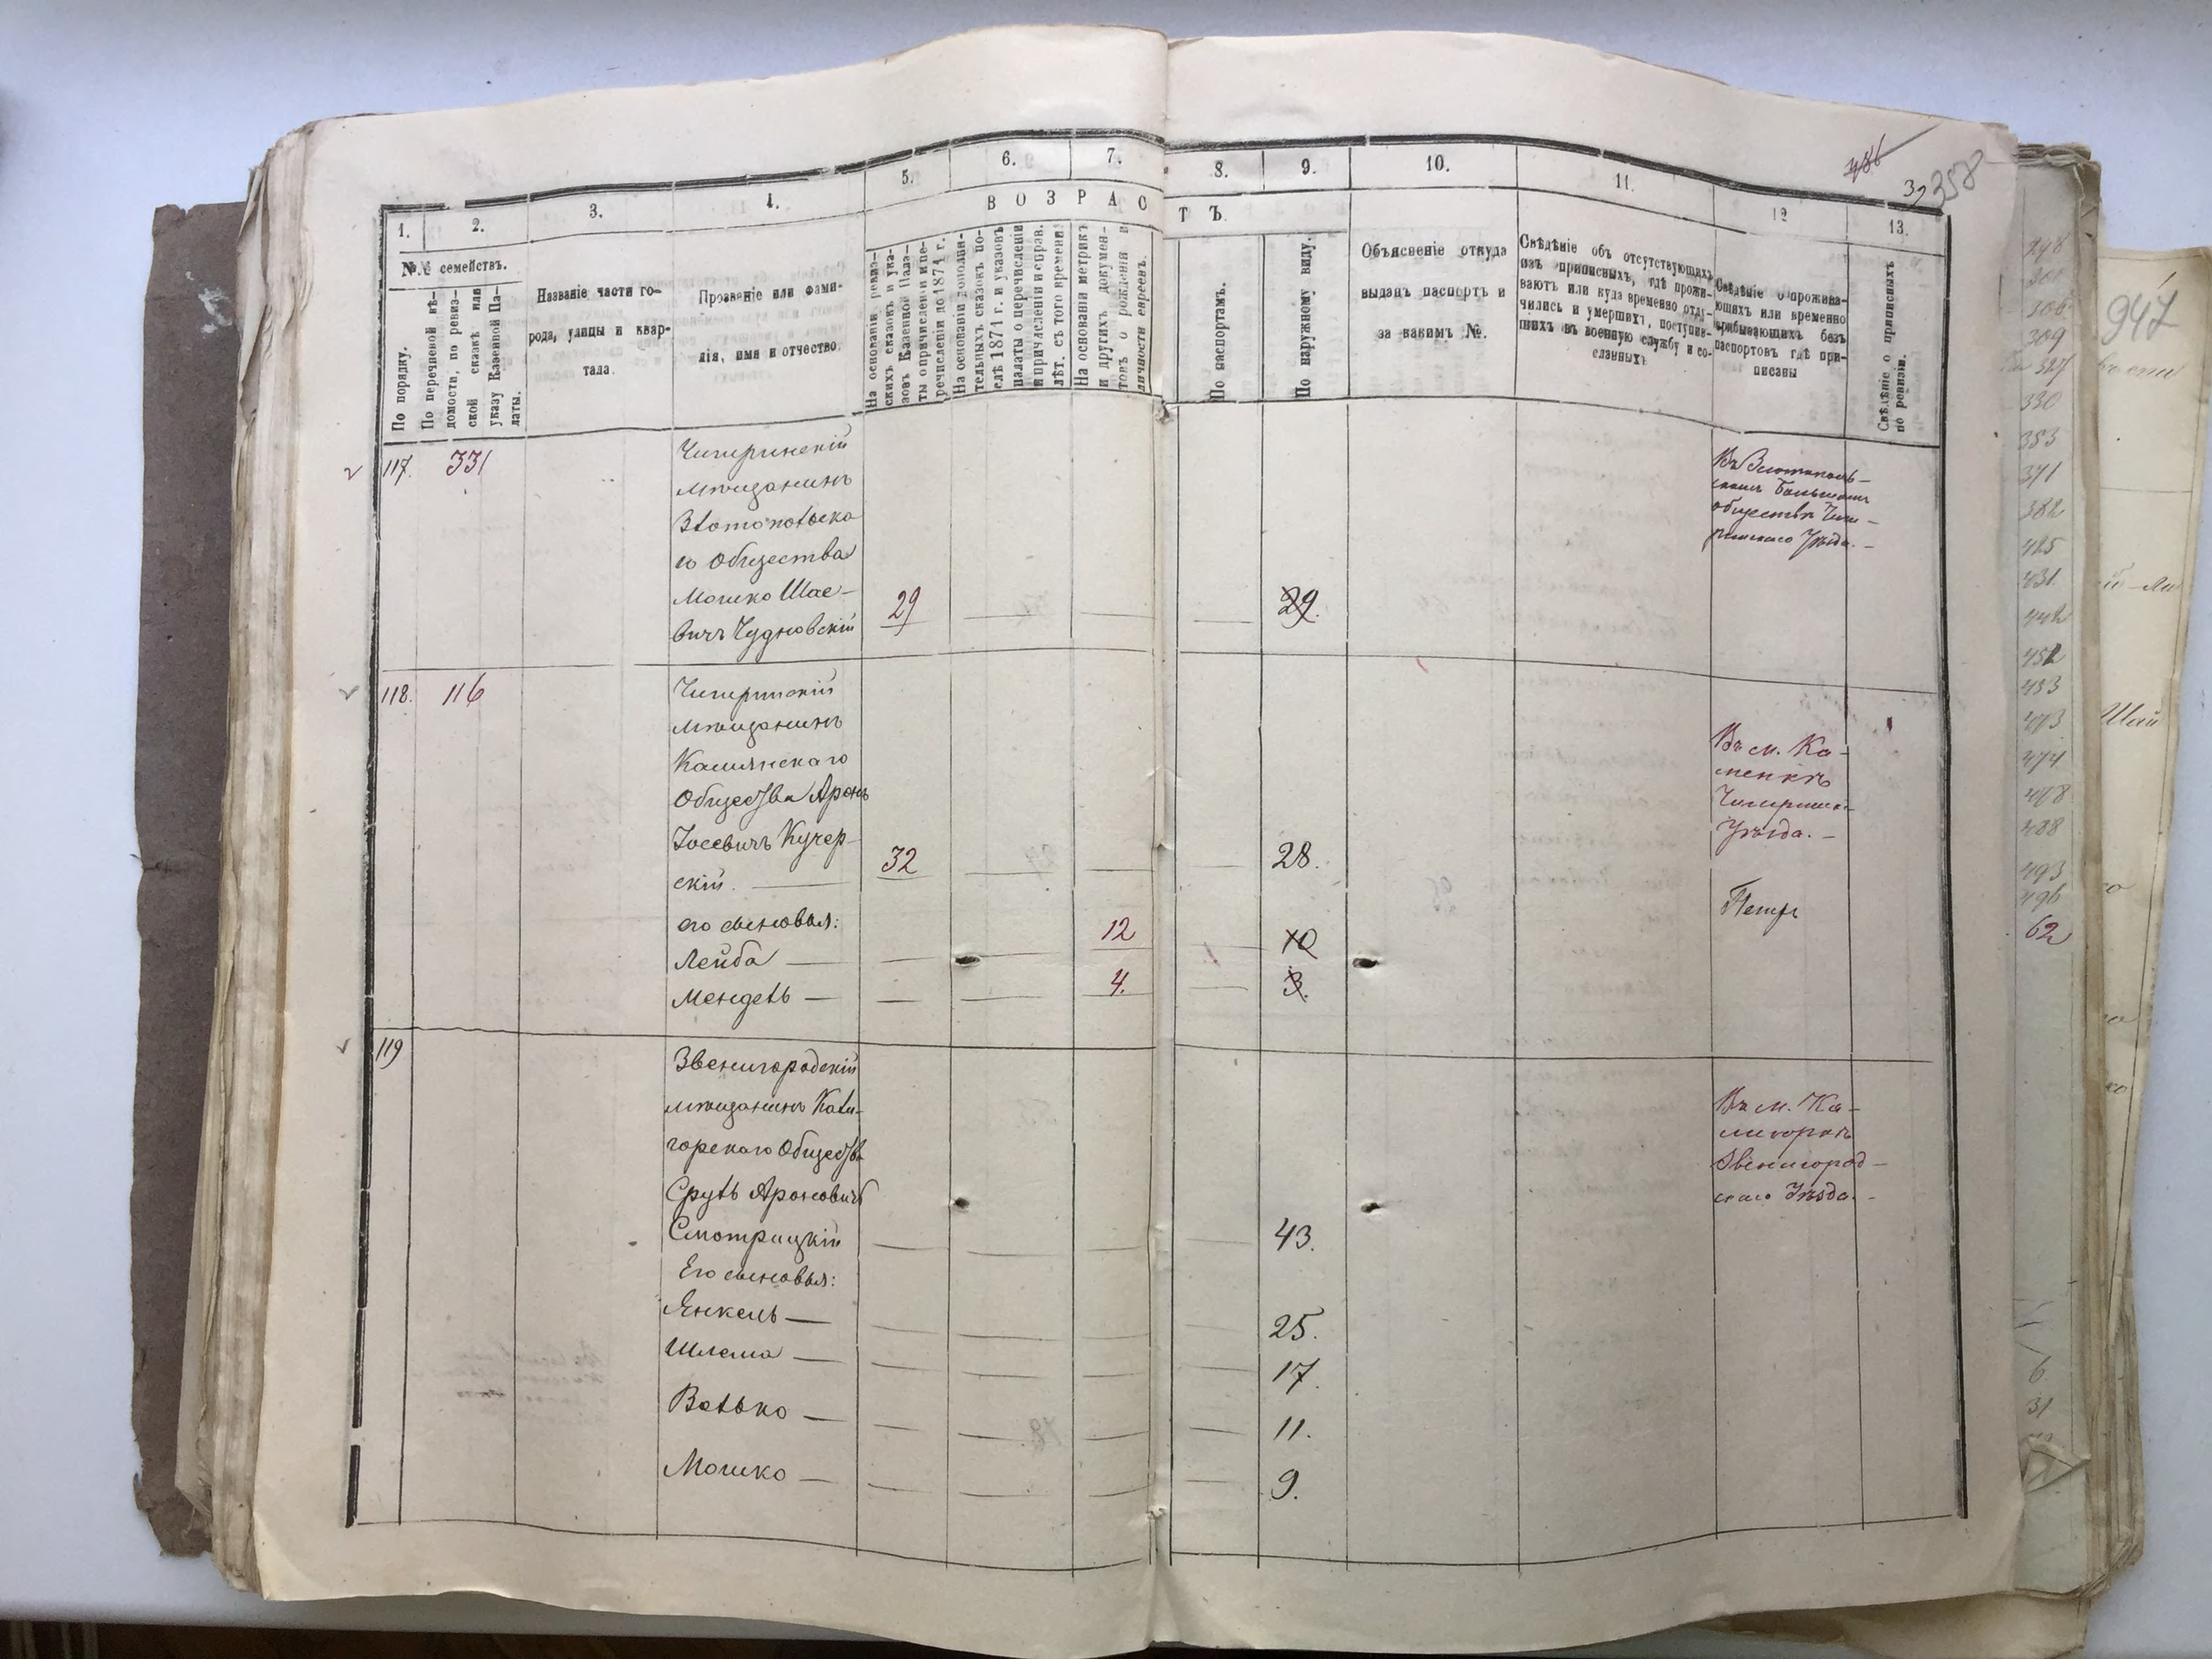 1.
2.
3.
4.
5.
6.
7.
8.
9.
10.
11.
12
13.
486
358
ВОЗРАСТЪ.
№№ семействъ.
По порядку.
По перечневой вѣ-
домости, по ревиз-
ской сказкѣ или
указу Казенной Па-
латы.
Названіе части го-
рода, улицы и квар-
тала.
Прозваніе или фами-
лія, имя и отчество.
На основаніи ревиз-
скихъ сказокъ и ука-
зовъ Казенной Пала-
ты о причисленіи и пе-
речисленіи до 1874 г.
На основаніи дополни-
тельныхъ сказокъ по-
слѣ 1874 г. и указовъ
палаты о перечисленіи
и причисленіи и справ.
лѣт. съ того времени.
На основаніи метрикъ
и другихъ докумен-
товъ о рожденіи и
личности евреевъ.
По паспортамъ.
По наружному виду.
Объясненіе откуда
выданъ паспортъ и
за какимъ №.
Свѣдѣніе объ отсутствующихъ
изъ приписныхъ, гдѣ прожи-
ваютъ или куда временно отлу-
чились и умершихъ, поступив-
шихъ въ военную службу и со-
сланныхъ
Свѣдѣніе о прожива-
ющихъ или временно
пребывающихъ безъ
паспортовъ гдѣ при-
писаны
Свѣдѣніе о приписныхъ
по ревизіи.
117. 331
Чигиринскій
мѣщанинъ
Златопольска
го Общества
Мошко Шае-
вичъ Чудновскій 29 29.
Въ Златополь-
скомъ
обществѣ Чиги-
ринскаго Уѣзда. -
118. 116
Чигиринскій
мѣщанинъ
Камянскаго
Общества Аронъ
Іосевичъ Кучер-
скій. 32 28.
его сыновья:
Лейба — 12 10
Мендель — 4. 3.
Въ м. Ка-
менкѣ
Чигиринск.
Уѣзда. -
119
Звенигородскій
мѣщанинъ Кали-
горскаго Общества
Сруль Ароновичъ
Смотрицкій 43.
Его сыновья:
Янкель — 25.
Шлема — 17.
Волько — 11.
Мошко — 9.
Въ м. Ка-
лигоркѣ
Звенигород-
скаго Уѣзда. -
248
309
327
330
353
371
382
425
431
442
452
453
473
474
478
488
493
496
62
6
31
947
Шай